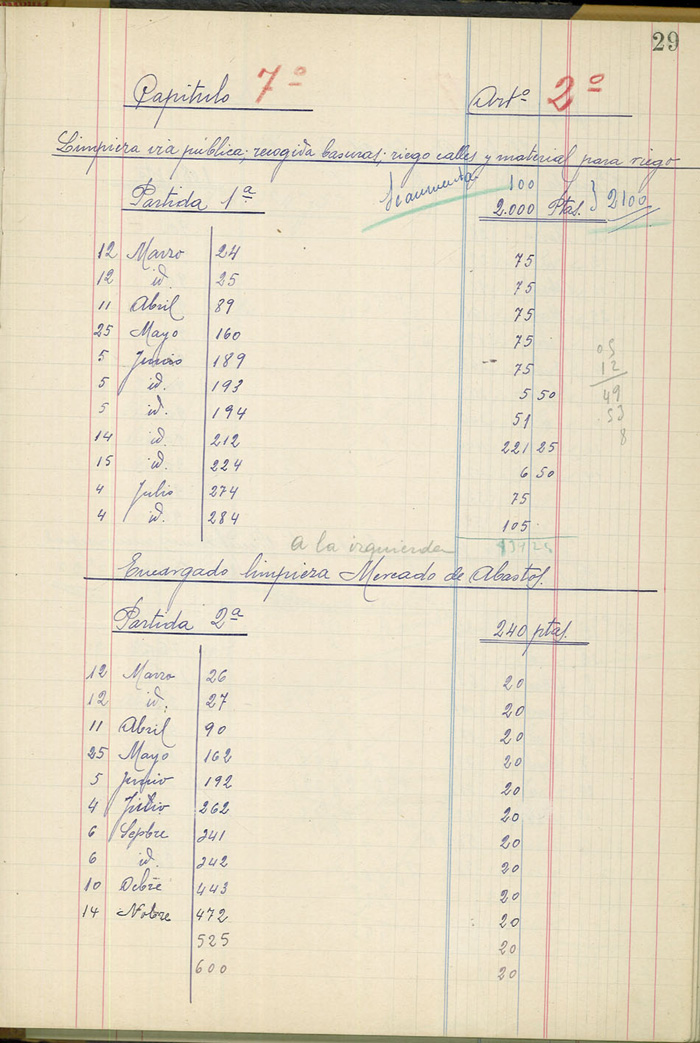 29
Capitulo 7º Artº 2º
Limpieza via pública; recogida basuras; riego calles y material para riego
Partida 1ª 100
2.000 Ptas. } 2100
12 Marzo 24 75
12 id. 25 75
11 Abril 89 75
25 Mayo 160 75
5 Junio 189 75
5 id. 193 5 50
5 id. 194 51
14 id. 212 221 25
15 id. 224 6 50
4 Julio 274 75
4 id. 284 105
05
12
49
53
8
a la izquierda
Encargado limpieza Mercado de Abastos.
Partida 2ª 240 ptas.
12 Marzo 26 20
12 id. 27 20
11 Abril 90 20
25 Mayo 162 20
5 Junio 192 20
4 Julio 262 20
6 Sepbre 341 20
6 id. 342 20
10 Octbre 443 20
14 Nobre 472 20
525 20
600 20